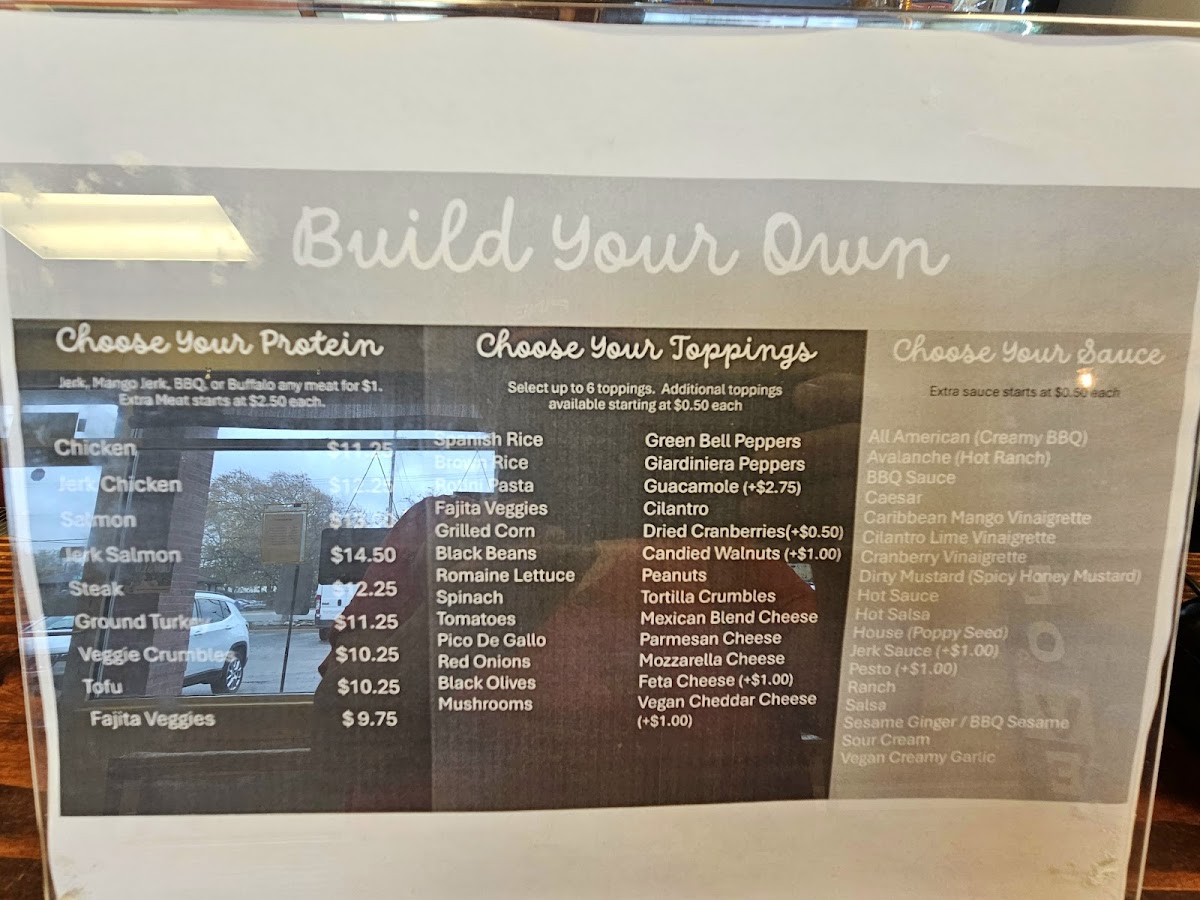 Build Your Own
Choose Your Protein
Jerk, Mango Jerk, BBQ, or Buffalo any meat for $1.
Extra Meat starts at $2.50 each.
Chicken $11.25
Jerk Chicken $12.25
Salmon
Jerk Salmon $14.50
Steak $12.25
Ground Turkey $11.25
Veggie Crumbles $10.25
Tofu $10.25
Fajita Veggies $9.75
Choose Your Toppings
Select up to 6 toppings. Additional toppings
available starting at $0.50 each
Spanish Rice
Brown Rice
Rotini Pasta
Fajita Veggies
Grilled Corn
Black Beans
Romaine Lettuce
Spinach
Tomatoes
Pico De Gallo
Red Onions
Black Olives
Mushrooms
Green Bell Peppers
Giardiniera Peppers
Guacamole (+$2.75)
Cilantro
Dried Cranberries(+$0.50)
Candied Walnuts (+$1.00)
Peanuts
Tortilla Crumbles
Mexican Blend Cheese
Parmesan Cheese
Mozzarella Cheese
Feta Cheese (+$1.00)
Vegan Cheddar Cheese
(+$1.00)
Choose Your Sauce
Extra sauce starts at $0.50 each
All American (Creamy BBQ)
Avalanche (Hot Ranch)
BBQ Sauce
Caesar
Caribbean Mango Vinaigrette
Cilantro Lime Vinaigrette
Cranberry Vinaigrette
Dirty Mustard (Spicy Honey Mustard)
Hot Sauce
Hot Salsa
House (Poppy Seed)
Jerk Sauce (+$1.00)
Pesto (+$1.00)
Ranch
Salsa
Sesame Ginger / BBQ Sesame
Sour Cream
Vegan Creamy Garlic